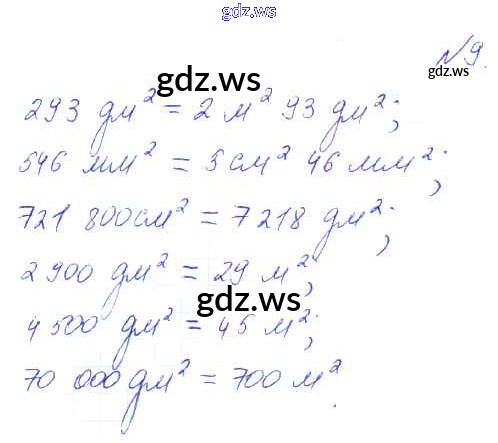 gdz.ws
№9.
gdz.ws
gdz.ws
293 дм² = 2 м² 93 дм²;
546 мм² = 5 см² 46 мм²;
721 800 см² = 7218 дм²;
2 900 дм² = 29 м²;
gdz.ws
4 500 дм² = 45 м²;
70 000 дм² = 700 м².